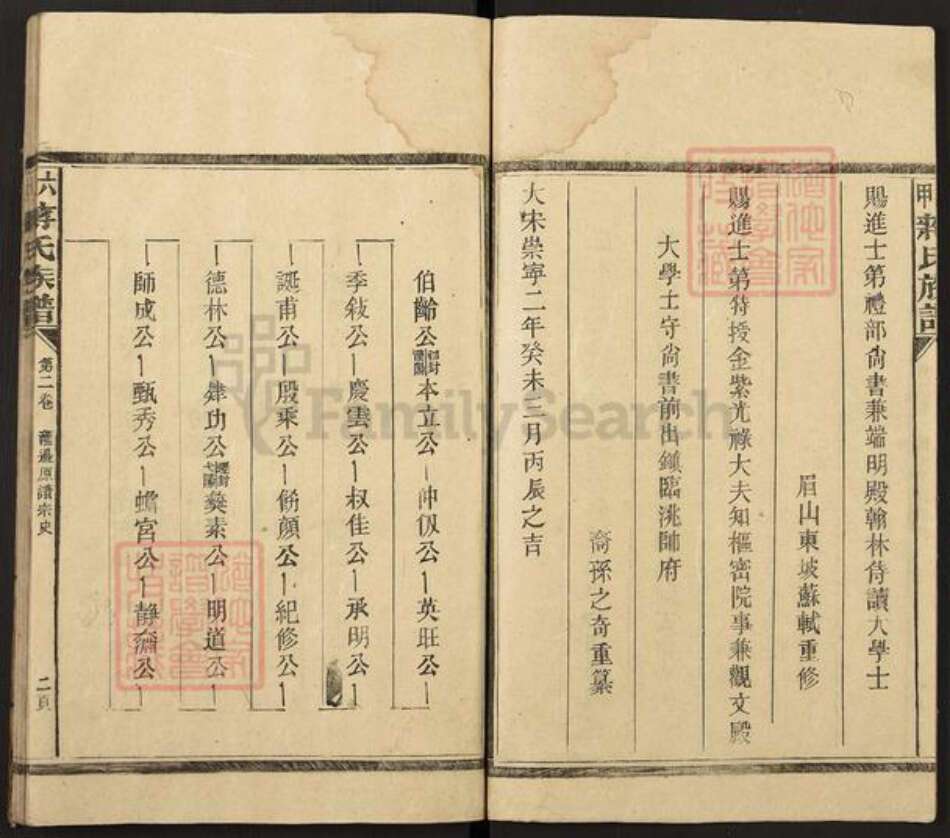 甲
蔣氏族譜
賜進士第禮部尙書兼端明殿翰林侍讀大學士
眉山東坡蘇軾重修
賜進士第特授金紫光祿大夫知樞密院事兼觀文殿
大學士守尙書前出鎮臨洮帥府
裔孫之奇重纂
大宋崇寧二年癸未三月丙辰之吉
伯齡公 本立公 仲伋公 英旺公
季敍公 慶雲公 叔佳公 承明公
誕甫公 殷乘公 飭顔公 紀修公
德林公 肄功公 葵素公 明道公
師成公 甄秀公 蟾宮公 靜齋公
六
蔣氏族譜
第二卷
龍邊原譜宗史
二頁
FamilySearch